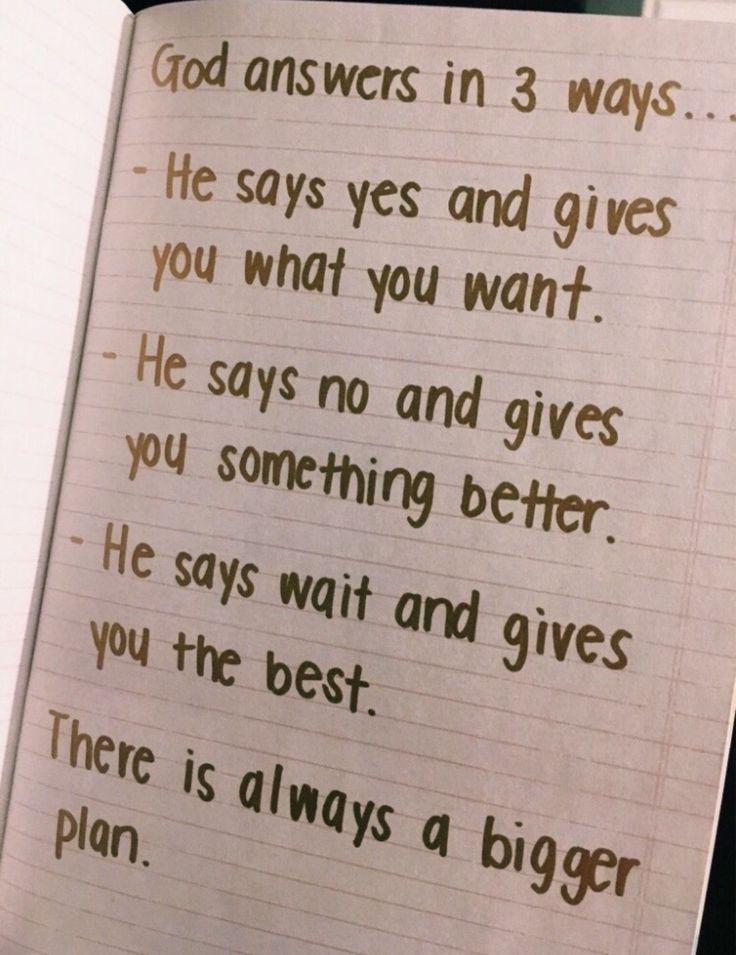 God answers in 3 ways...
- He says yes and gives
you what you want.
- He says no and gives
you something better.
- He says wait and gives
you the best.
There is always a bigger
plan.